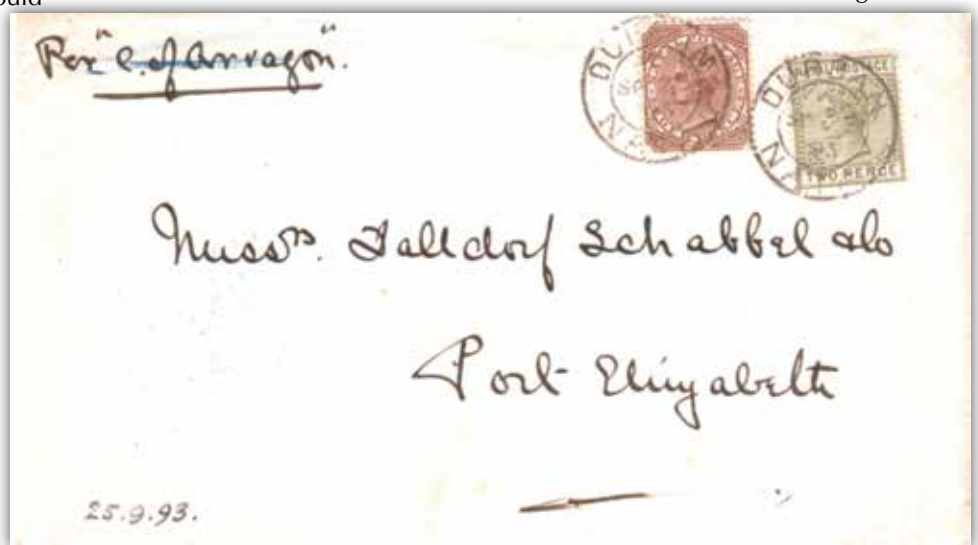 Per "C. of Arragon".
DURBAN
DURBAN
TWO PENCE
Messrs. Dalldorf Schabbel & Co
Port Elizabeth
25.9.93.